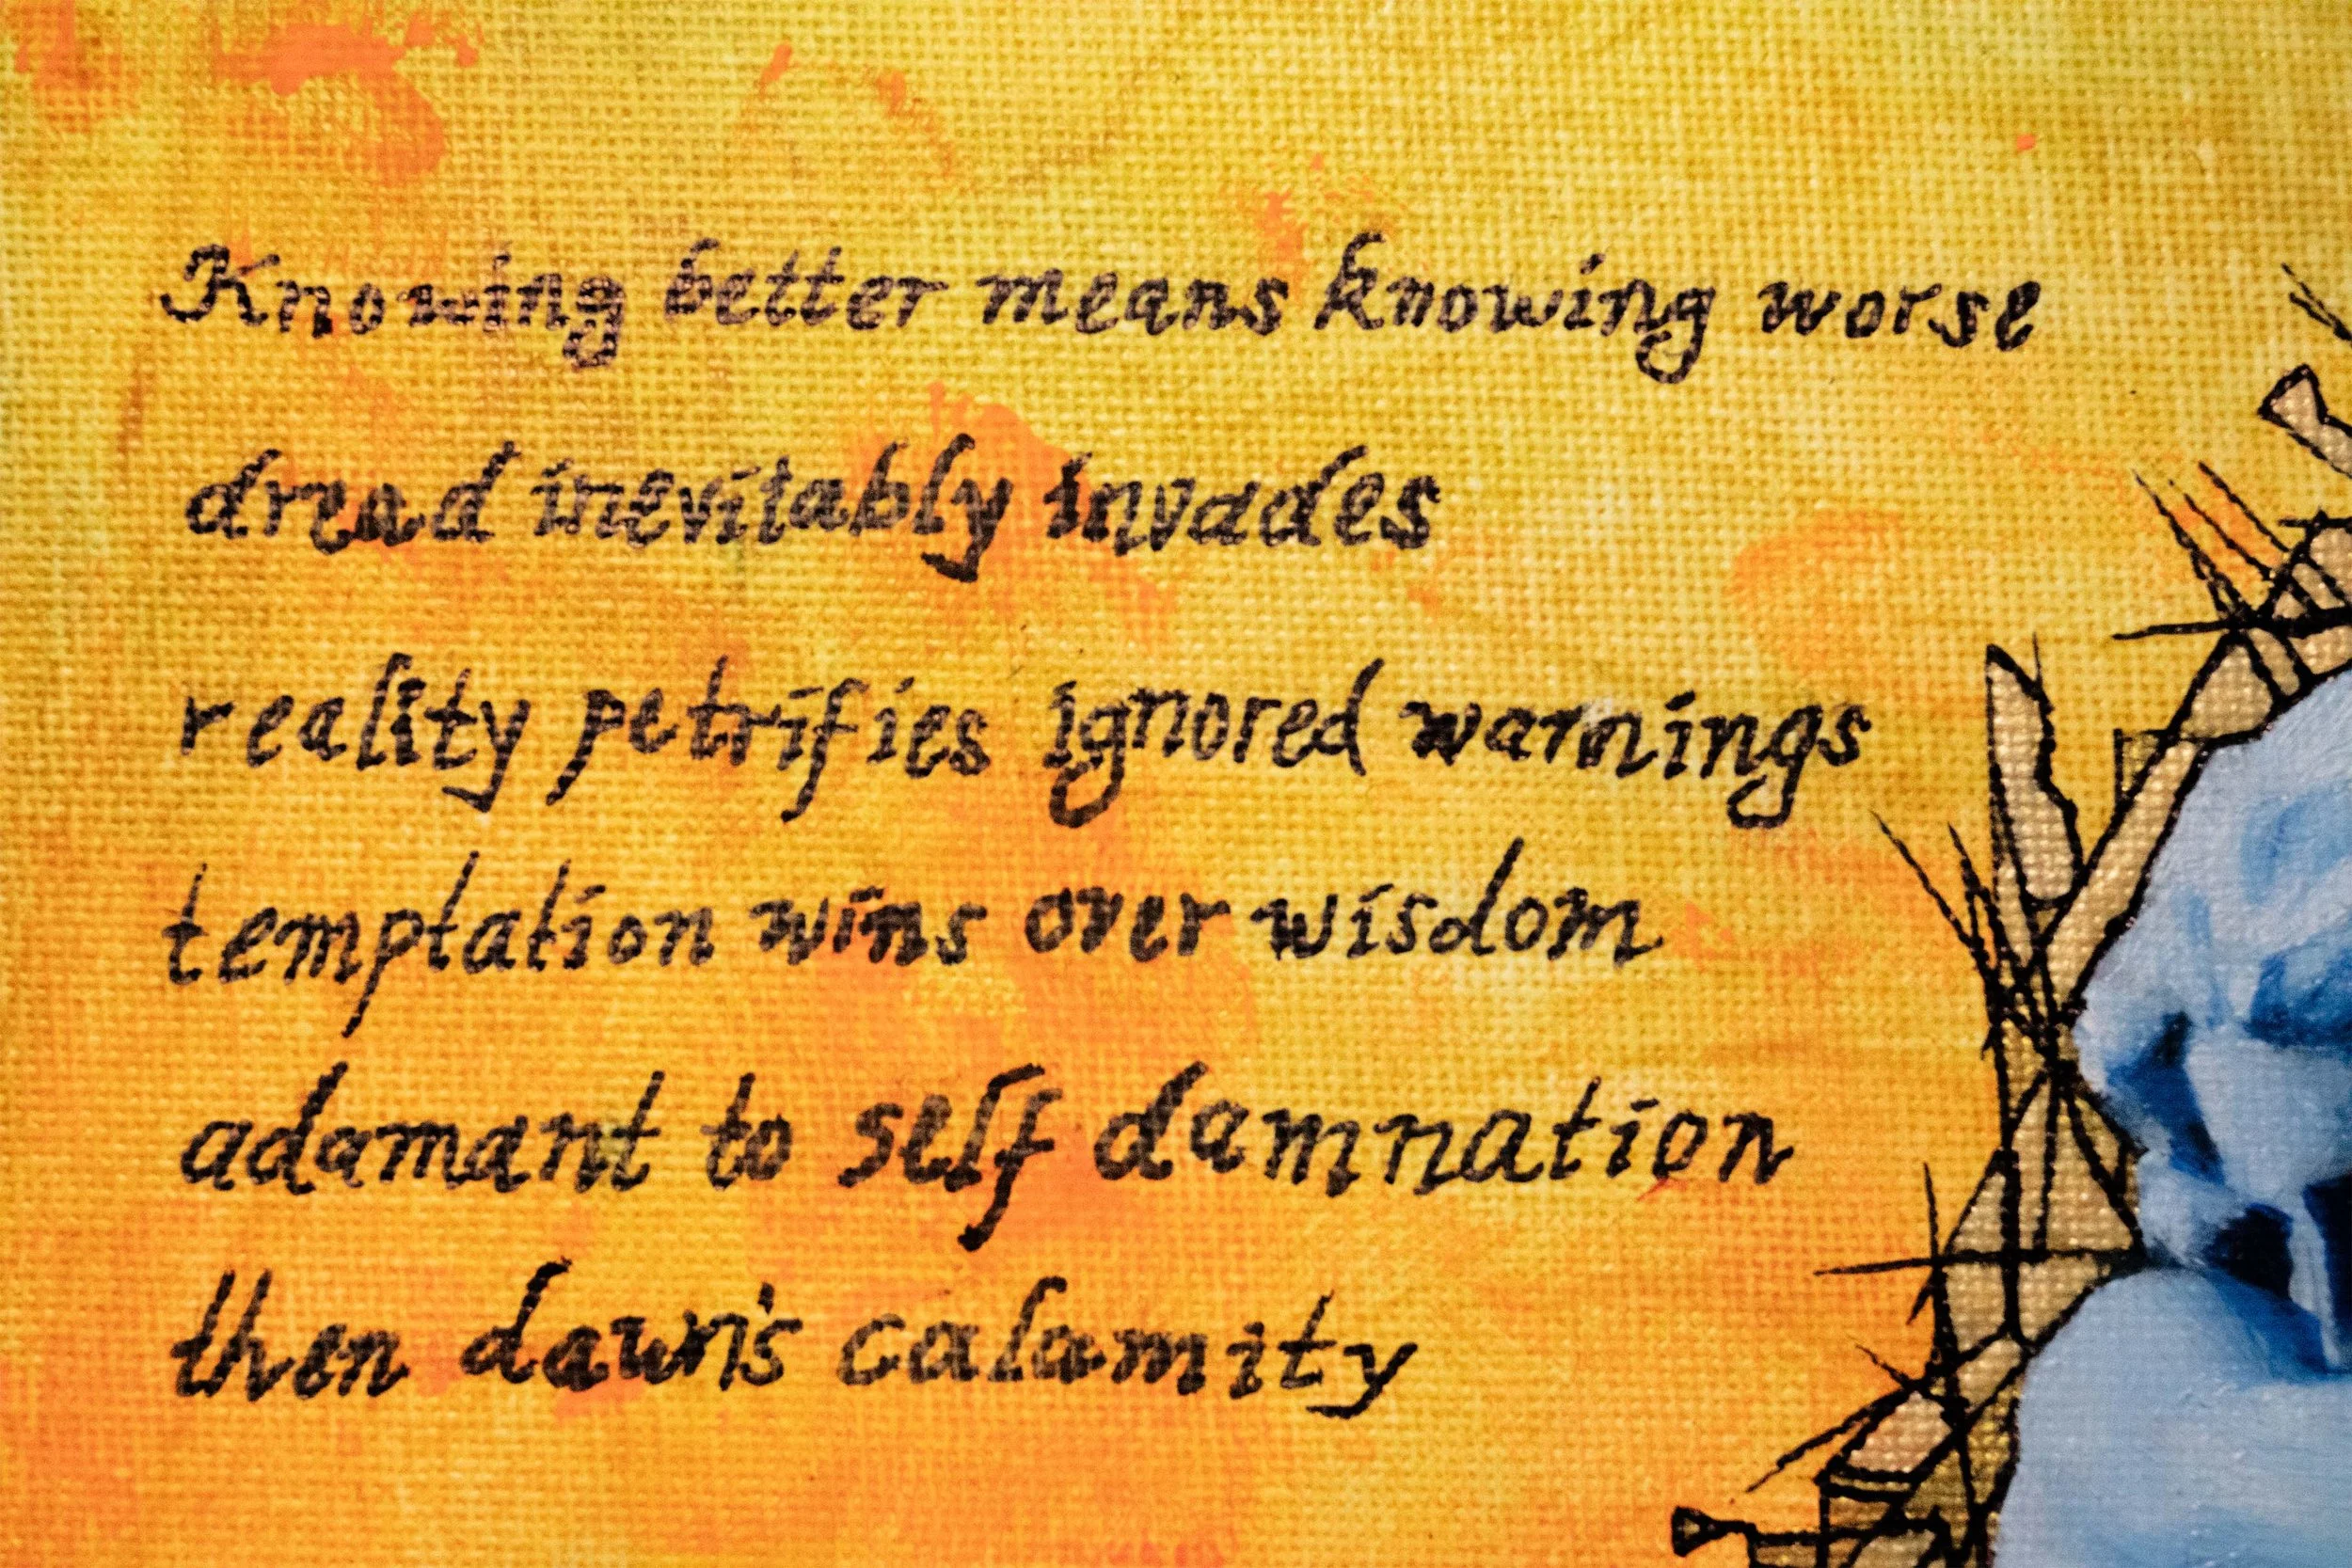 Knowing better means knowing worse
dread inevitably invades
reality petrifies ignored warnings
temptation wins over wisdom
adamant to self damnation
then dawn's calamity